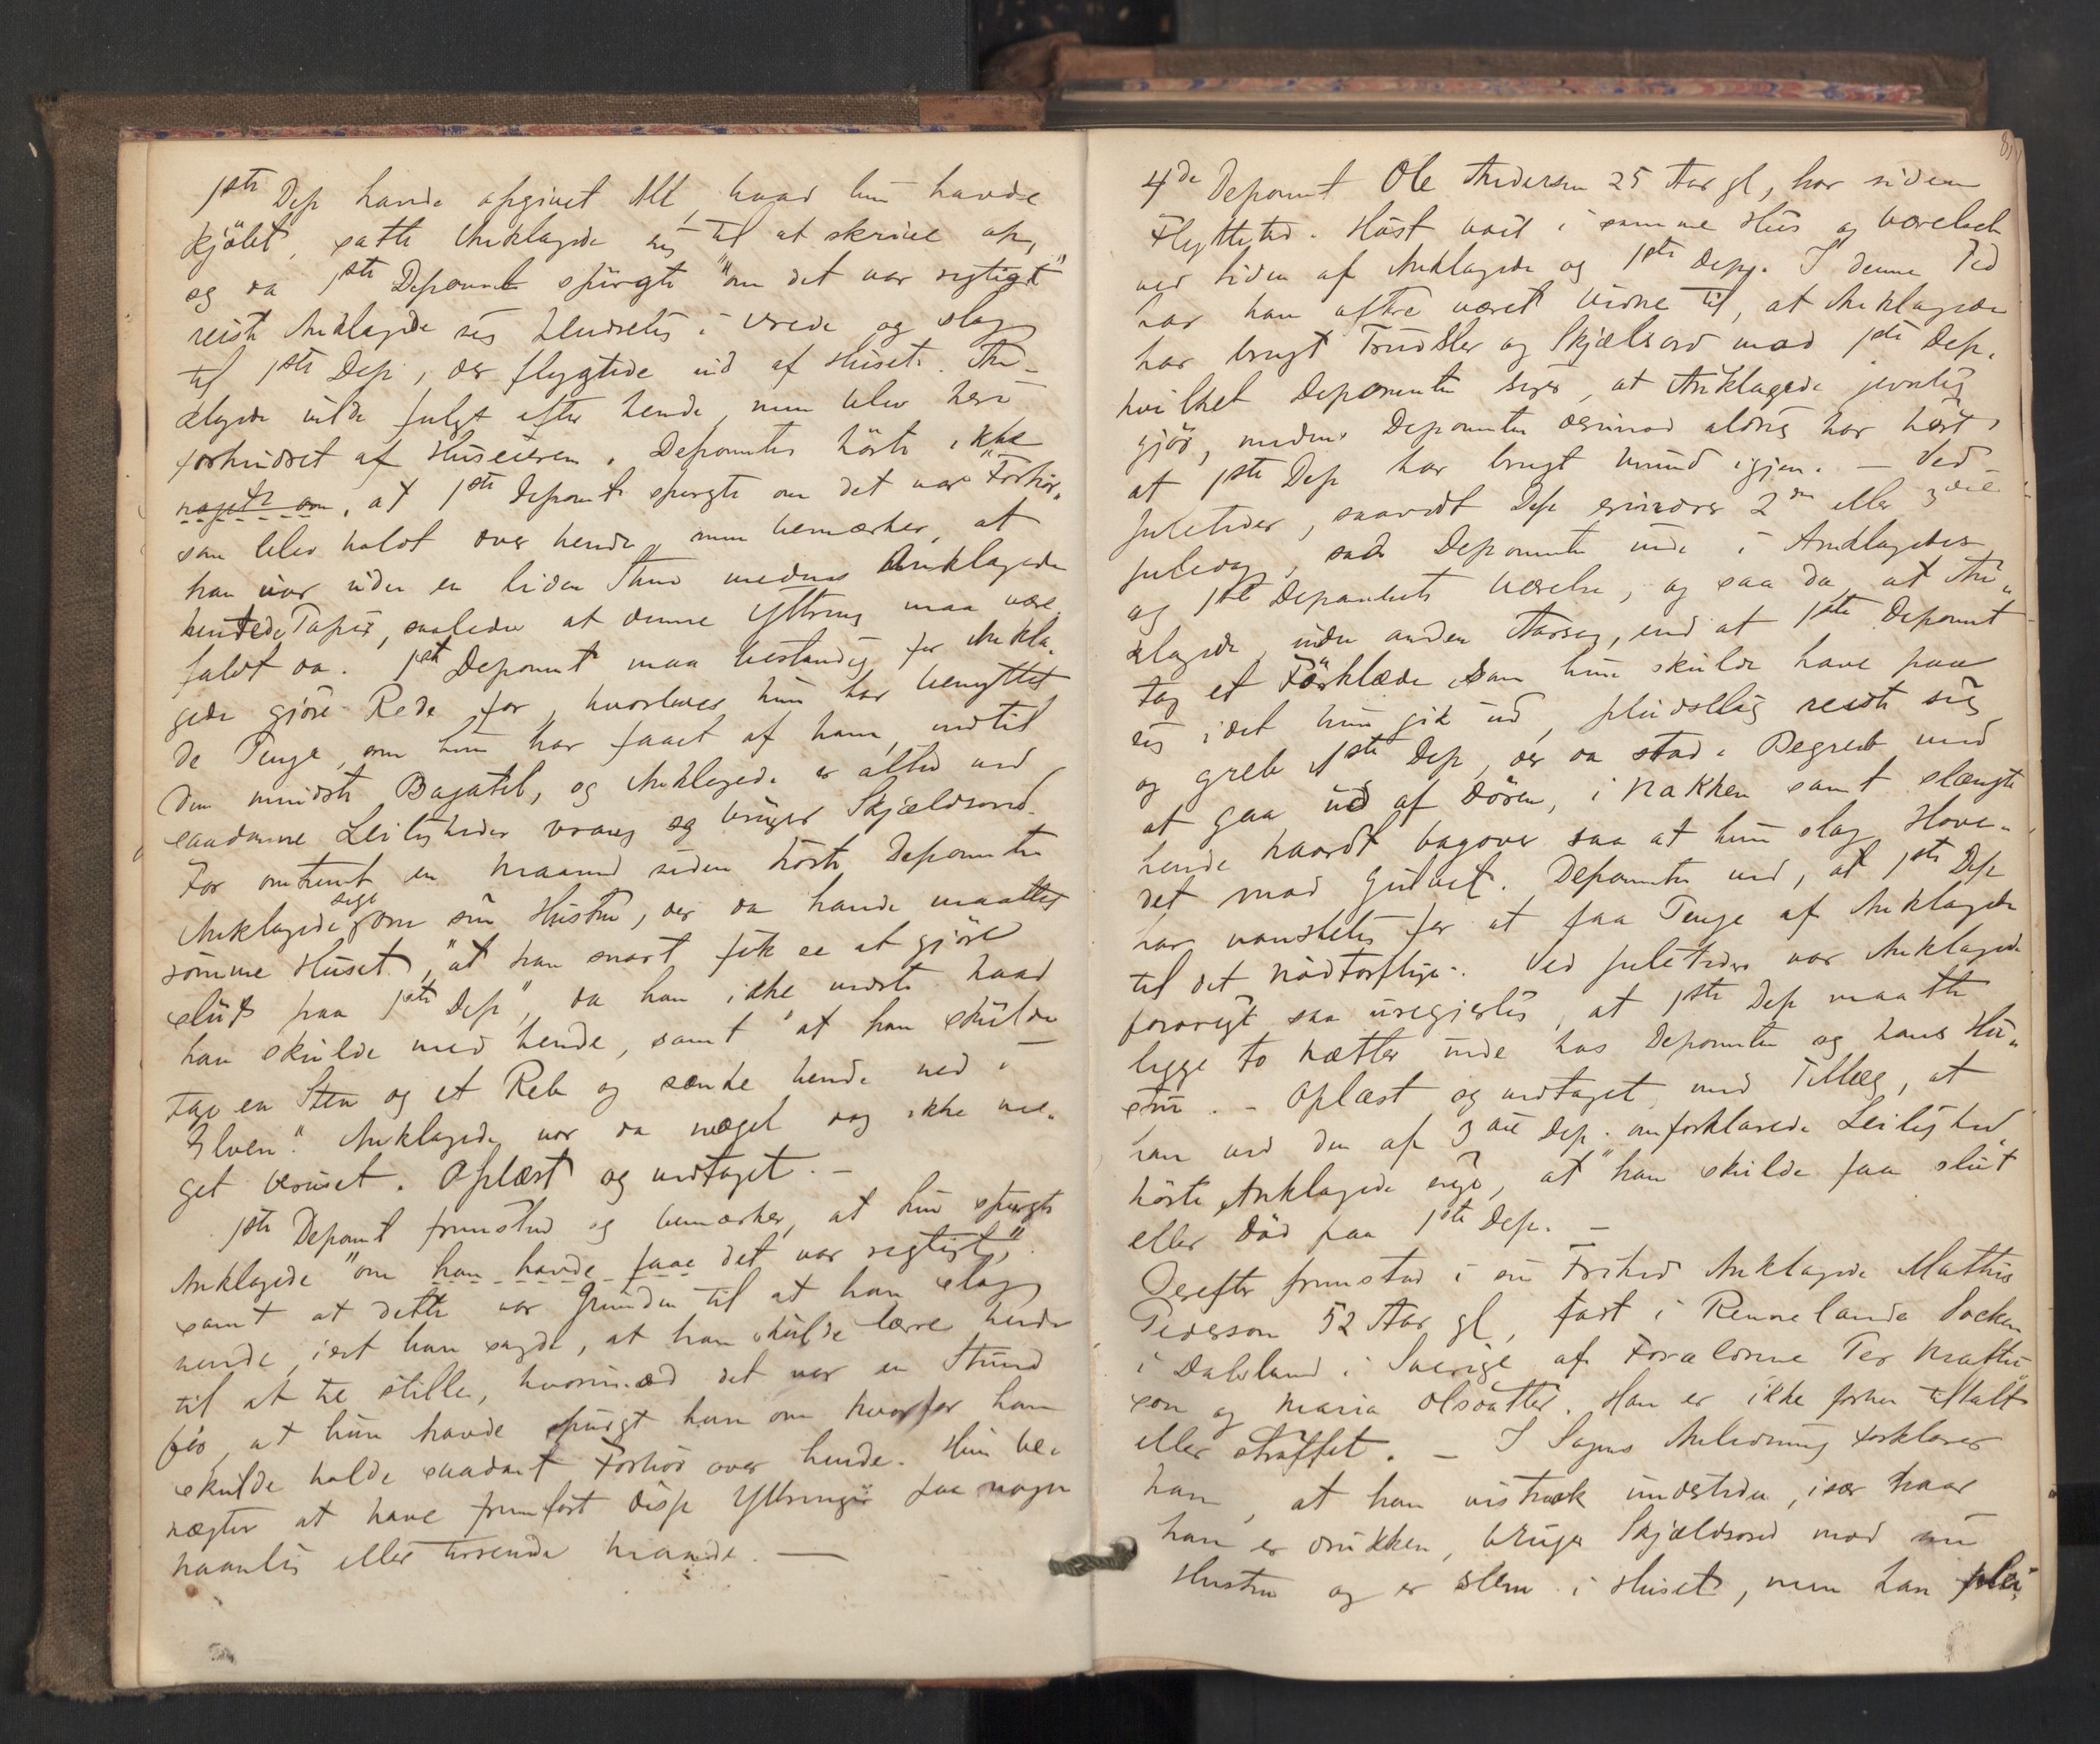 1ste Dep havde opgivet Alt, hvad hun havde
kjöbt, satte Anklagede sig til at skrive op,
og da 1ste Deponent spurgte "om det var rigtigt"
reiste Anklagede sig pludselig i Vrede og slog
til 1ste Dep, der flygtede ud af Huset. An-
klagede vilde fulgt efter hende, men blev heri
forhindret af Huseieren. Deponenten hörte ikke
noget om, at 1ste Deponent spurgte om det var "Forhör"
som blev holdt over hende, men bemærker, at
han var ude en liden Stund medens Anklagede
hentede Papir, saaledes at denne Yttring maa være
faldt da. 1ste Deponent maa bestandig for Ankla-
gede gjöre Rede for, hvorledes hun har benyttet
de Penge, som hun har faaet af ham, indtil
den mindste Bagatel, og Anklagede er altid ved
saadanne Leiligheder vrang og bruger Skjældsord.
For omtrent en Maaned siden hörte Deponenten
Anklagede sige om sin Hustru, der da havde maattet
römme Huset, "at han snart fik se at gjöre
slut paa 1ste Dep", da han ikke vidste hvad
han skulde med hende, samt "at han skulde
tage en Sten og et Reb og sænke hende ned i
Elven". Anklagede var da noget dog ikke me-
get beruset. Oplæst og vedtaget. -
1ste Deponent fremstod og bemærker, at hun spurgte
Anklagede "om han havde faae det var rigtigt",
samt at dette var Grunden til at han slog
hende, idet han sagde, at han skulde lære hende
til at tie stille, hvorimod det var en Stund
för, at hun havde spurgt ham om hvorfor han
skulde holde saadant Forhör over hende. Hun be-
nægter at have fremfört disse Yttringer paa nogen
haanlig eller irrende Maade. -
4de Deponent Ole Andersen 25 Aar gl, har siden
Flyttetid i Höst boet i samme Hus og Værelset
ved Siden af Anklagede og 1ste Dep. I denne Tid
har han oftre været Vidne til, at Anklagede
har brugt Trudsler og Skjælsord mod 1ste Dep,
hvilket Deponenten siger, at Anklagede jevnlig
gjör, medens Deponenten derimod aldrig har hört
at 1ste Dep har brugt Mund igjen. - Ved
Juletider, saavidt Dep erindrer 2den eller 3die
Juledag, sad Deponenten inde i Anklagedes
og 1ste Deponents Værelse, og saa da, at An-
klagede, uden anden Aarsag, end at 1ste Deponent
tog et Forklæde som hun skulde have paa
sig idet hun gik ud, pludselig reiste sig
og greb 1ste Dep, der da stod i Begreb med
at gaa ud af Dören, i Nakken samt slængte
hende haardt bagover saa at hun slog Hove-
det mod Gulvet. Deponenten ved, at 1ste Dep
har vanskelig for at faa Penge af Anklagede
til det Nödtörftige. Ved Juletider var Anklagede
forövrigt saa uregjerlig, at 1ste Dep maatte
ligge to Nætter inde hos Deponenten og hans Hu-
stru. - Oplæst og vedtaget med Tillæg, at
han ved den af 3die Dep. omforklarede Leilighed
hörte Anklagede sige, at "han skulde faa slut
eller Död paa 1ste Dep. -
Derefter fremstod i sin Frihed Anklagede Mathis
Pederson 52 Aar gl, född i Rennelanda Socken
i Dalsland i Sverige af Forældrene Per Mathis-
son og Maria Olsdatter. Han er ikke forhen tiltalt
eller straffet. - I Sagens Anledning forklarer
han, at han vistnok undertiden, især naar
han er drukken, bruger Skjældsord mod sin
Hustru og er slem i Huset, men han plei-